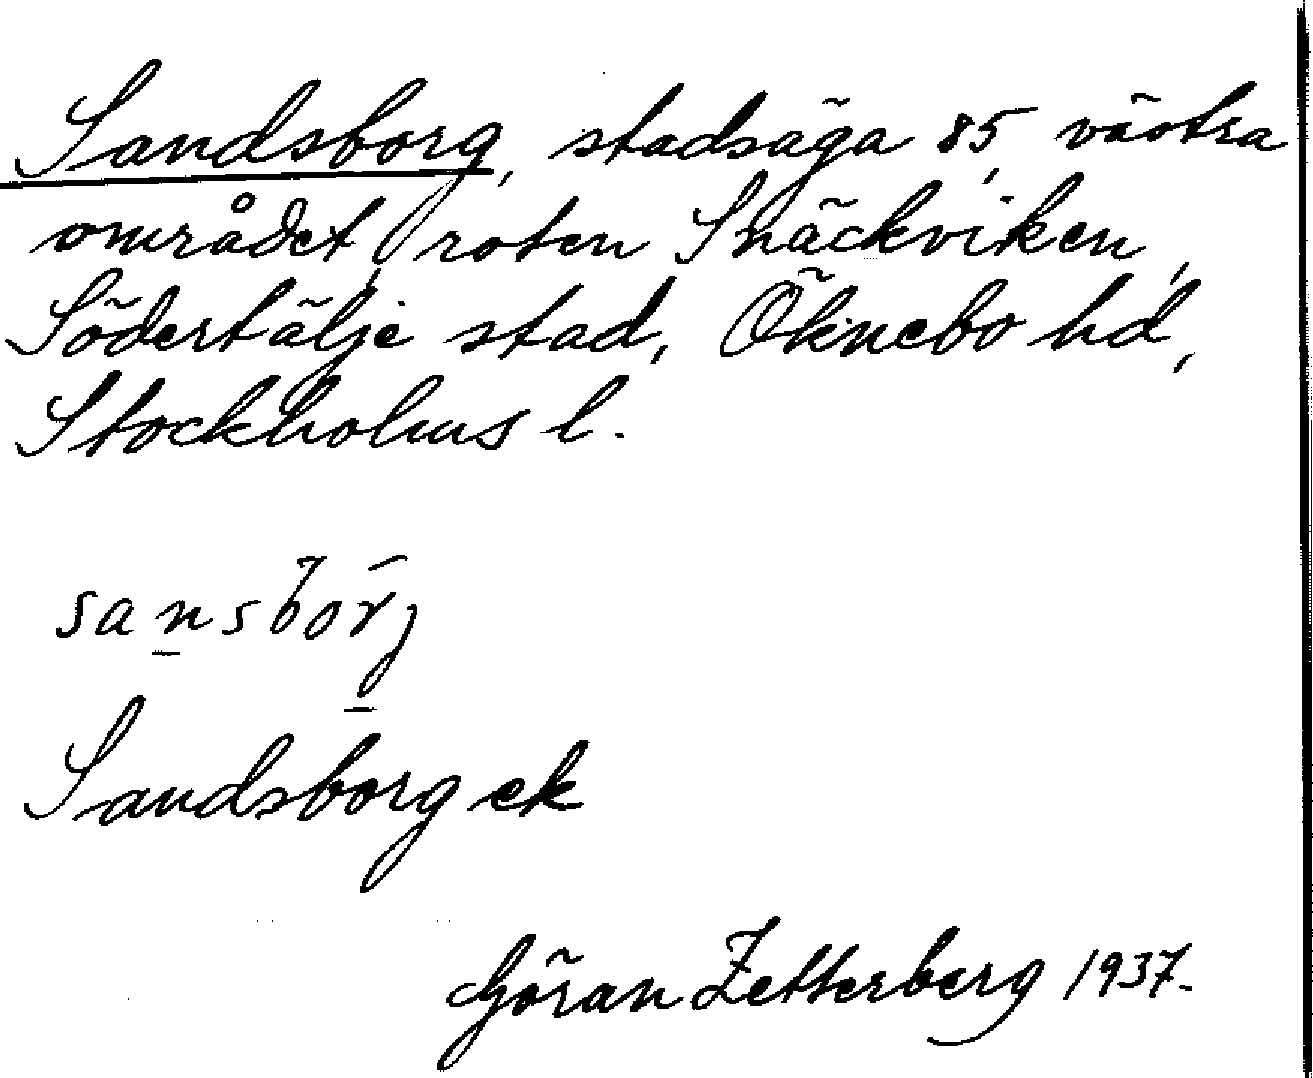 Sandsborg, stadsäga 85, västra
området, roten Snäckviken,
Södertälje stad, Öknebo hd,
Stockholms l.
sansbórj
Sandsborg ek
Göran Zetterberg 1937.